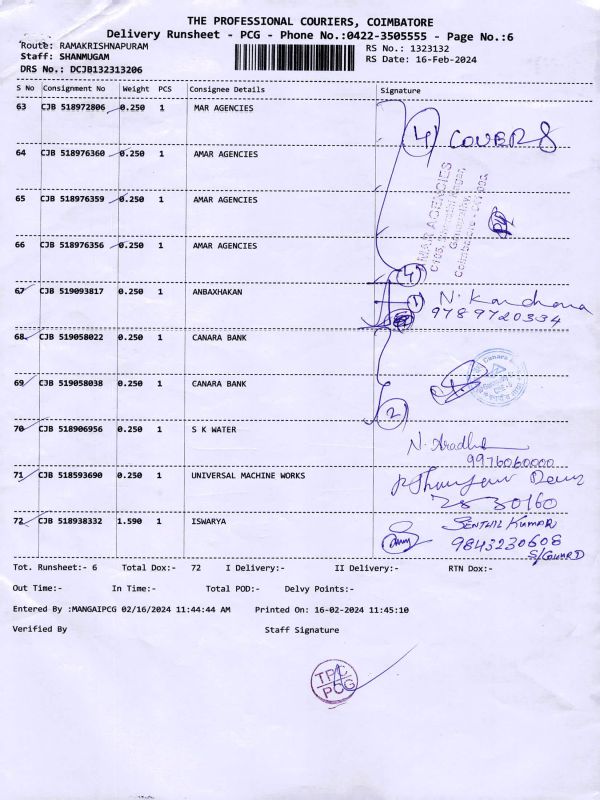 THE PROFESSIONAL COURIERS, COIMBATORE
Delivery Runsheet - PCG - Phone No.:0422-3505555 - Page No.:6
Route: RAMAKRISHNAPURAM RS No.: 1323132
Staff: SHANMUGAM RS Date: 16-Feb-2024
DRS No.: DCJB132313206
S No Consignment No Weight PCS Consignee Details Signature
63 CJB 518972806 0.250 1 MAR AGENCIES
4 COVERS
64 CJB 518976360 0.250 1 AMAR AGENCIES
65 CJB 518976359 0.250 1 AMAR AGENCIES
MAR AGENCIES
66 CJB 518976356 0.250 1 AMAR AGENCIES
4
67 CJB 519093817 0.250 1 ANBAXHAKAN 1 N. Kandhana
9789720334
68 CJB 519058022 0.250 1 CANARA BANK
69 CJB 519058038 0.250 1 CANARA BANK
2
70 CJB 518906956 0.250 1 S K WATER N. Aradh
9976060000
71 CJB 518593690 0.250 1 UNIVERSAL MACHINE WORKS
25 30160
72 CJB 518938332 1.590 1 ISWARYA SENTHIL KUMAR
9843230608
S/GUARD
Tot. Runsheet:- 6 Total Dox:- 72 I Delivery:- II Delivery:- RTN Dox:-
Out Time:- In Time:- Total POD:- Delvy Points:-
Entered By :MANGAIPCG 02/16/2024 11:44:44 AM Printed On: 16-02-2024 11:45:10
Verified By Staff Signature
TPC
PCG